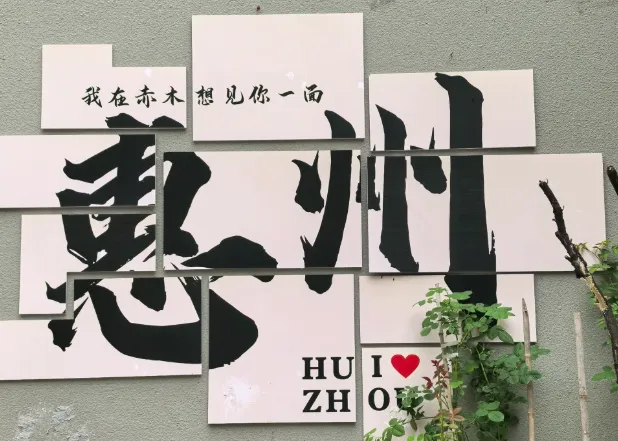 我在赤木想见你一面
惠州
HUI❤
ZHOU